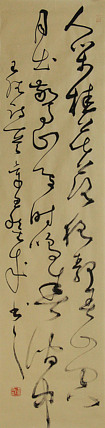 人閒桂花落夜靜春山空
月出驚山鳥時鳴春澗中
王維詩 書